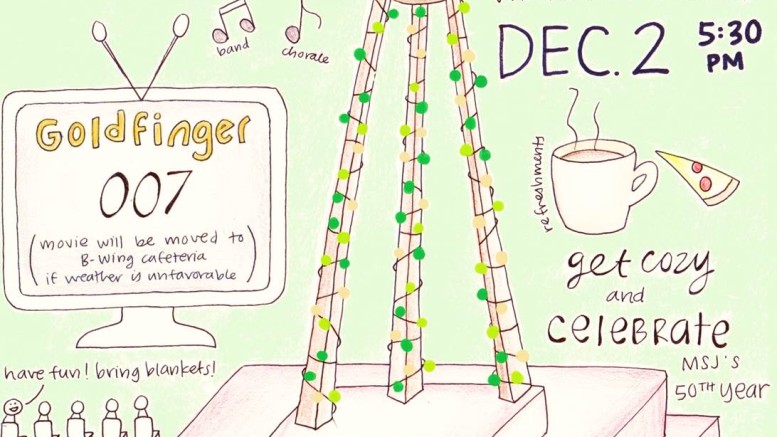 band
chorale
DEC. 2
5:30
PM
Goldfinger
007
(movie will be moved to
B-wing cafeteria
if weather is unfavorable)
refreshments
get cozy
and
celebrate
MSJ's
50TH year
have fun! bring blankets!